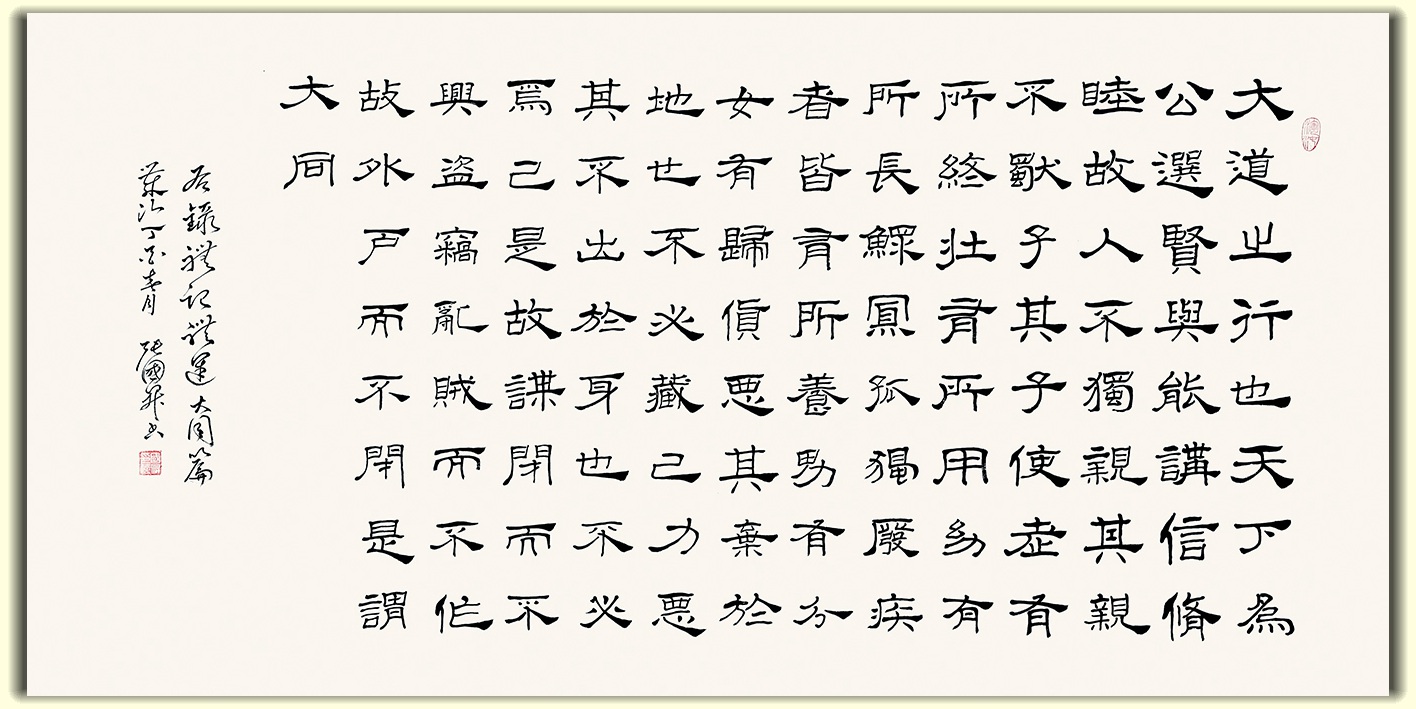 大道之行也天下為
公選賢與能講信脩
睦故人不獨親其親
不獨子其子使老有
所終壯有所用幼有
所長鰥寡孤獨廢疾
者皆有所養男有分
女有歸貨惡其棄於
地也不必藏己力惡
其不出於身也不必
爲己是故謀閉而不
興盜竊亂賊而不作
故外戶而不閉是謂
大同
右錄禮記禮運大同篇
歲次丁 國 書